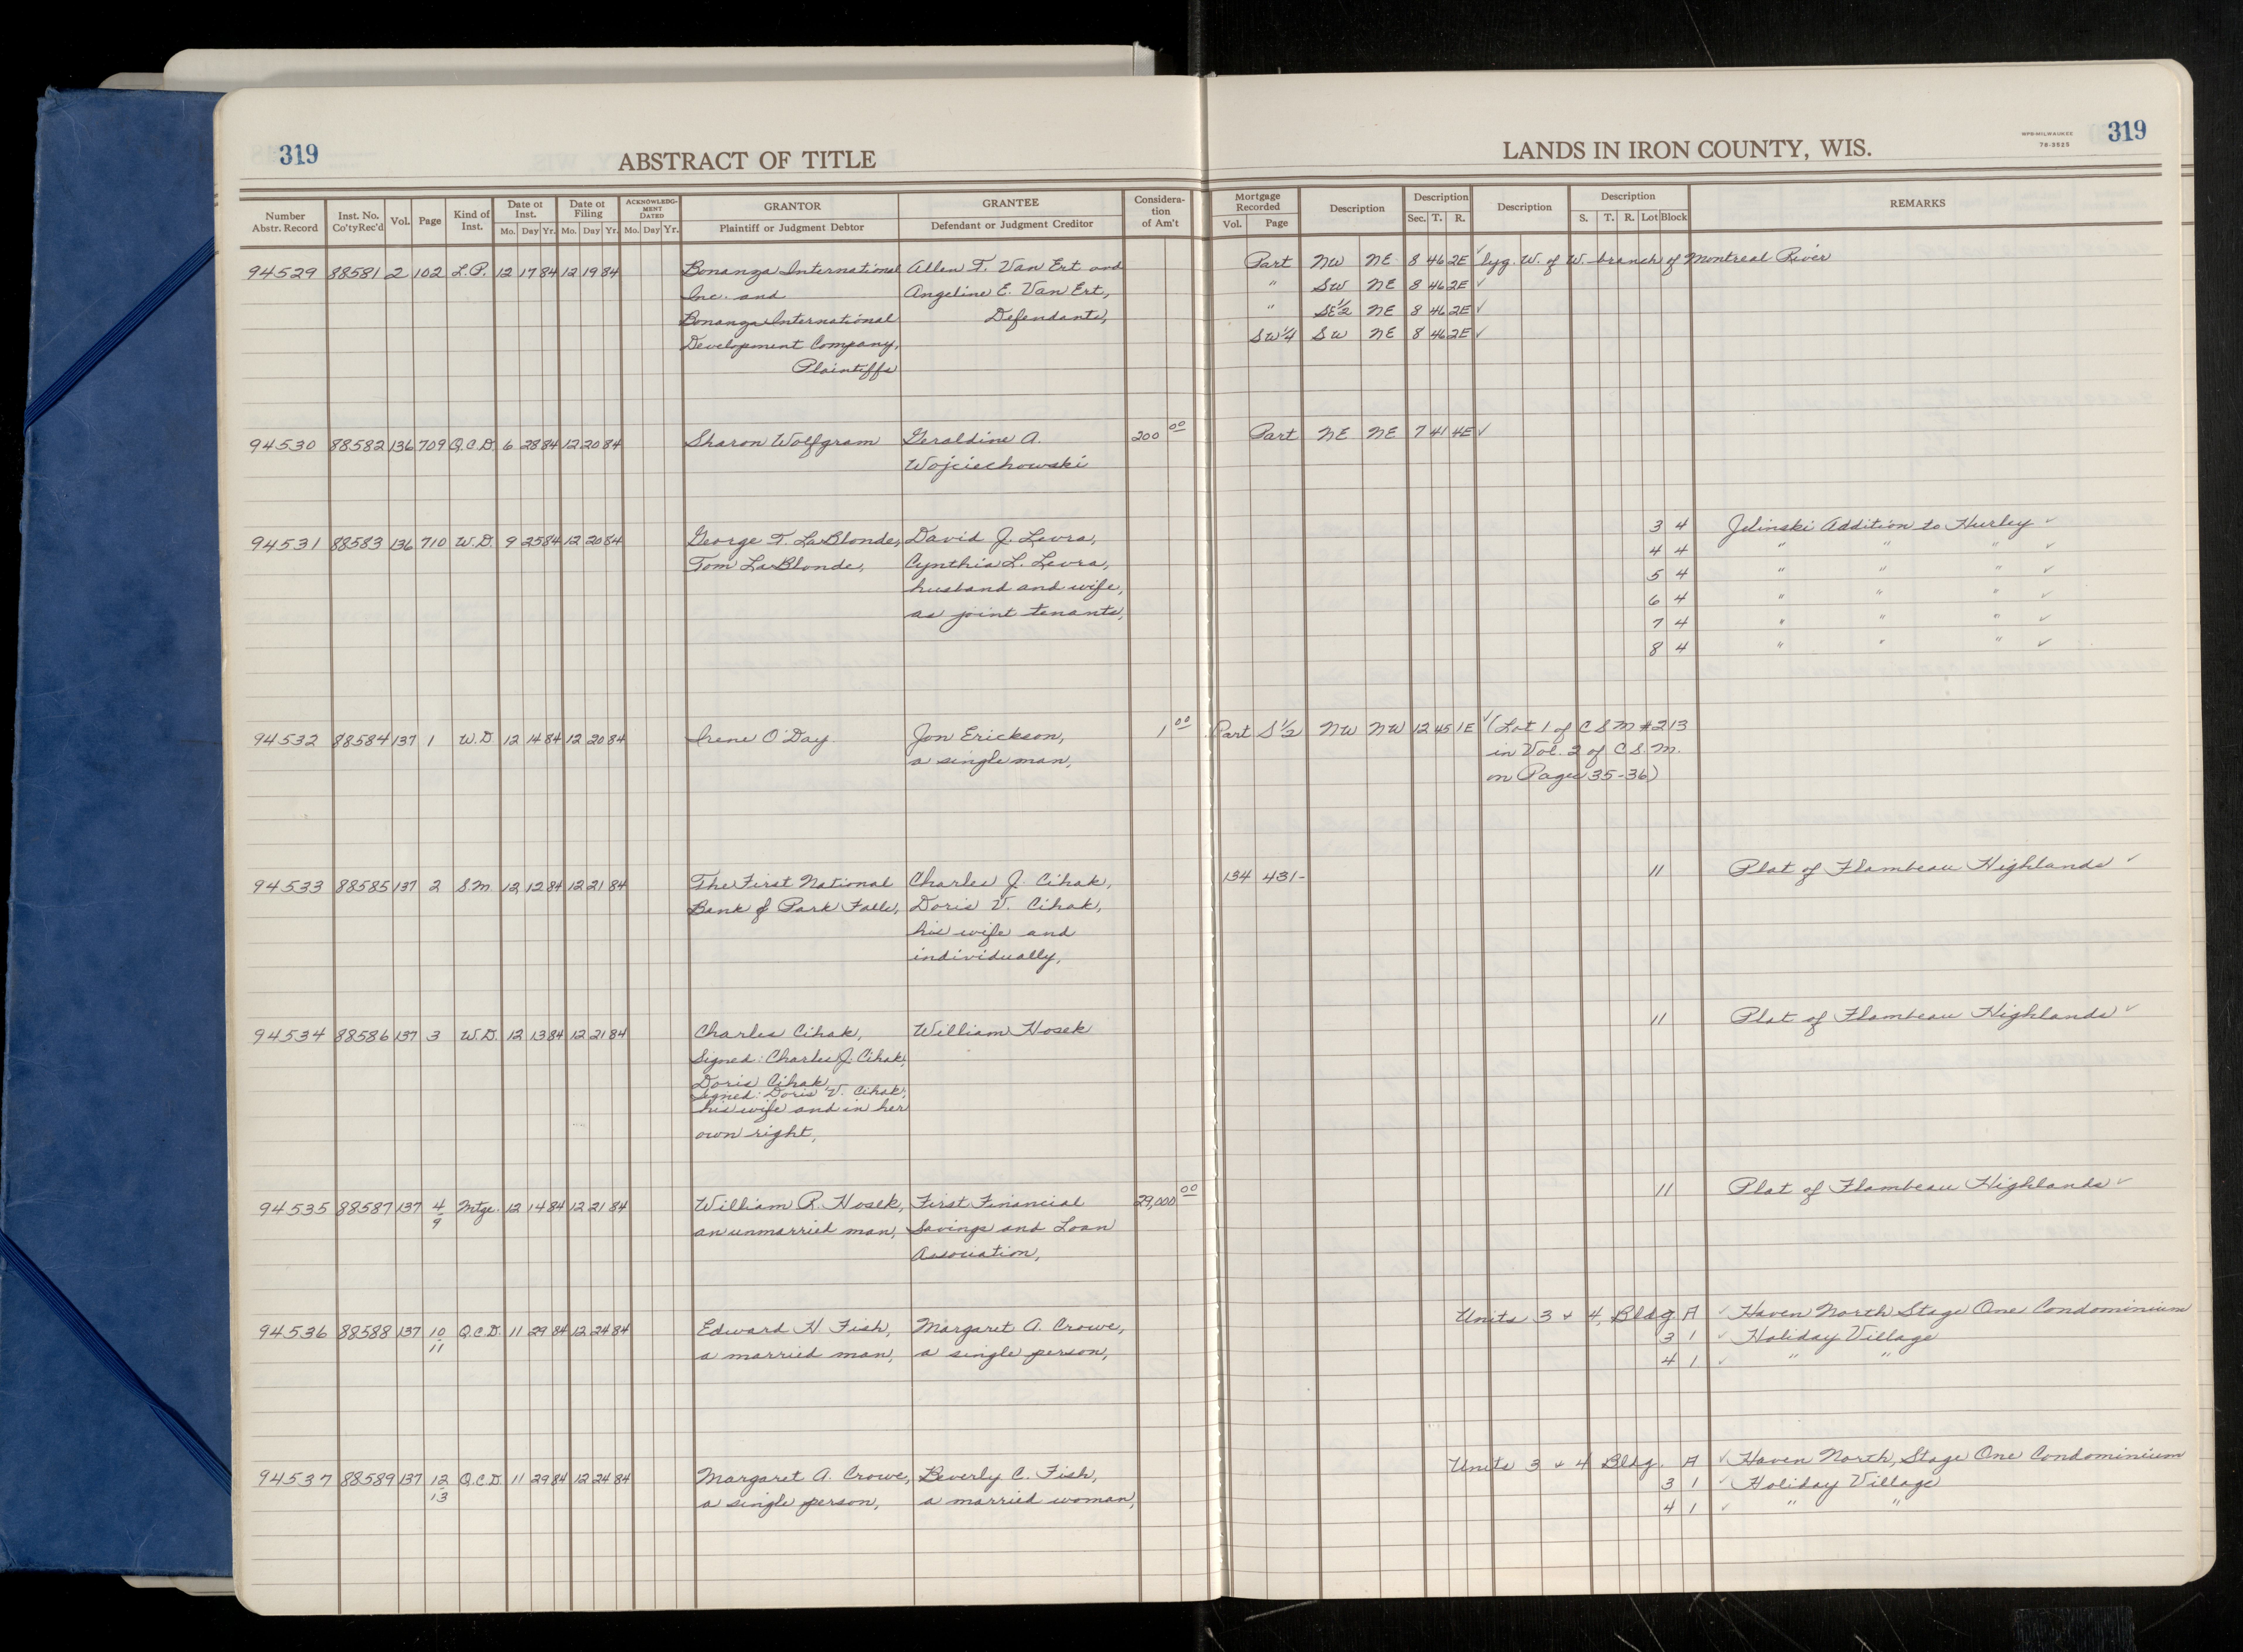 319 ABSTRACT OF TITLE LANDS IN IRON COUNTY, WIS. WPB-MILWAUKEE 319
78-3925
Number Abstr. Record Inst. No. Co'tyRec'd Vol. Page Kind of Inst. Date of Inst. Mo. Day Yr. Date of Filing Mo. Day Yr. ACKNOWLEDGMENT DATED Mo. Day Yr. GRANTOR Plaintiff or Judgment Debtor GRANTEE Defendant or Judgment Creditor Consideration of Am't Mortgage Recorded Vol. Page Description Description Sec. T. R. Description Description S. T. R. Lot Block REMARKS
94529 88581 2 102 L.P. 12 17 84 12 19 84 Bonanza International Allen F. Van Ert and Part NW NE 8 46 2E ✓ lyg. W. of W. branch of Montreal River
Inc. and Angeline E. Van Ert, " SW NE 8 46 2E ✓
Bonanza International Defendants, " SE½ NE 8 46 2E ✓
Development Company, SW¼ SW NE 8 46 2E ✓
Plaintiffs
94530 88582 136 709 Q.C.D. 6 28 84 12 20 84 Sharon Wolfgram Geraldine A. 200 00 Part NE NE 7 41 4E ✓
Wojciechowski
3 4 Jelinski Addition to Hurley ✓
94531 88583 136 710 W.D. 9 25 84 12 20 84 George T. LaBlonde, David J. Levra, 4 4 " " " ✓
Tom LaBlonde, Cynthia L. Levra, 5 4 " " " ✓
husband and wife, 6 4 " " " ✓
as joint tenants, 7 4 " " " ✓
8 4 " " " ✓
94532 88584 137 1 W.D. 12 14 84 12 20 84 Irene O'Day Jon Erickson, 1 00 Part S½ NW NW 12 45 1E ✓ (Lot 1 of C S M #213
a single man, in Vol. 2 of C.S.M.
on Pages 35-36)
94533 88585 137 2 S.M. 12 12 84 12 21 84 The First National Charles J. Cihak, 134 431- 11 Plat of Flambeau Highlands ✓
Bank of Park Falls, Doris V. Cihak,
his wife and
individually,
94534 88586 137 3 W.D. 12 13 84 12 21 84 Charles Cihak, William Hosek 11 Plat of Flambeau Highlands ✓
Signed: Charles J. Cihak,
Doris Cihak,
Signed: Doris V. Cihak,
his wife and in her
own right,
94535 88587 137 4/9 Mtge. 12 14 84 12 21 84 William R. Hosek, First Financial 29,000 00 11 Plat of Flambeau Highlands ✓
an unmarried man, Savings and Loan
Association,
94536 88588 137 10/11 Q.C.D. 11 29 84 12 24 84 Edward H. Fish, Margaret A. Crowe, Units 3 + 4, Bldg. A ✓ Haven North, Stage One Condominium
a married man, a single person, 3 1 ✓ Holiday Village
4 1 ✓ " "
94537 88589 137 12/13 Q.C.D. 11 29 84 12 24 84 Margaret A. Crowe, Beverly C. Fish, Units 3 + 4 Bldg. A ✓ Haven North, Stage One Condominium
a single person, a married woman, 3 1 ✓ Holiday Village
4 1 ✓ " "